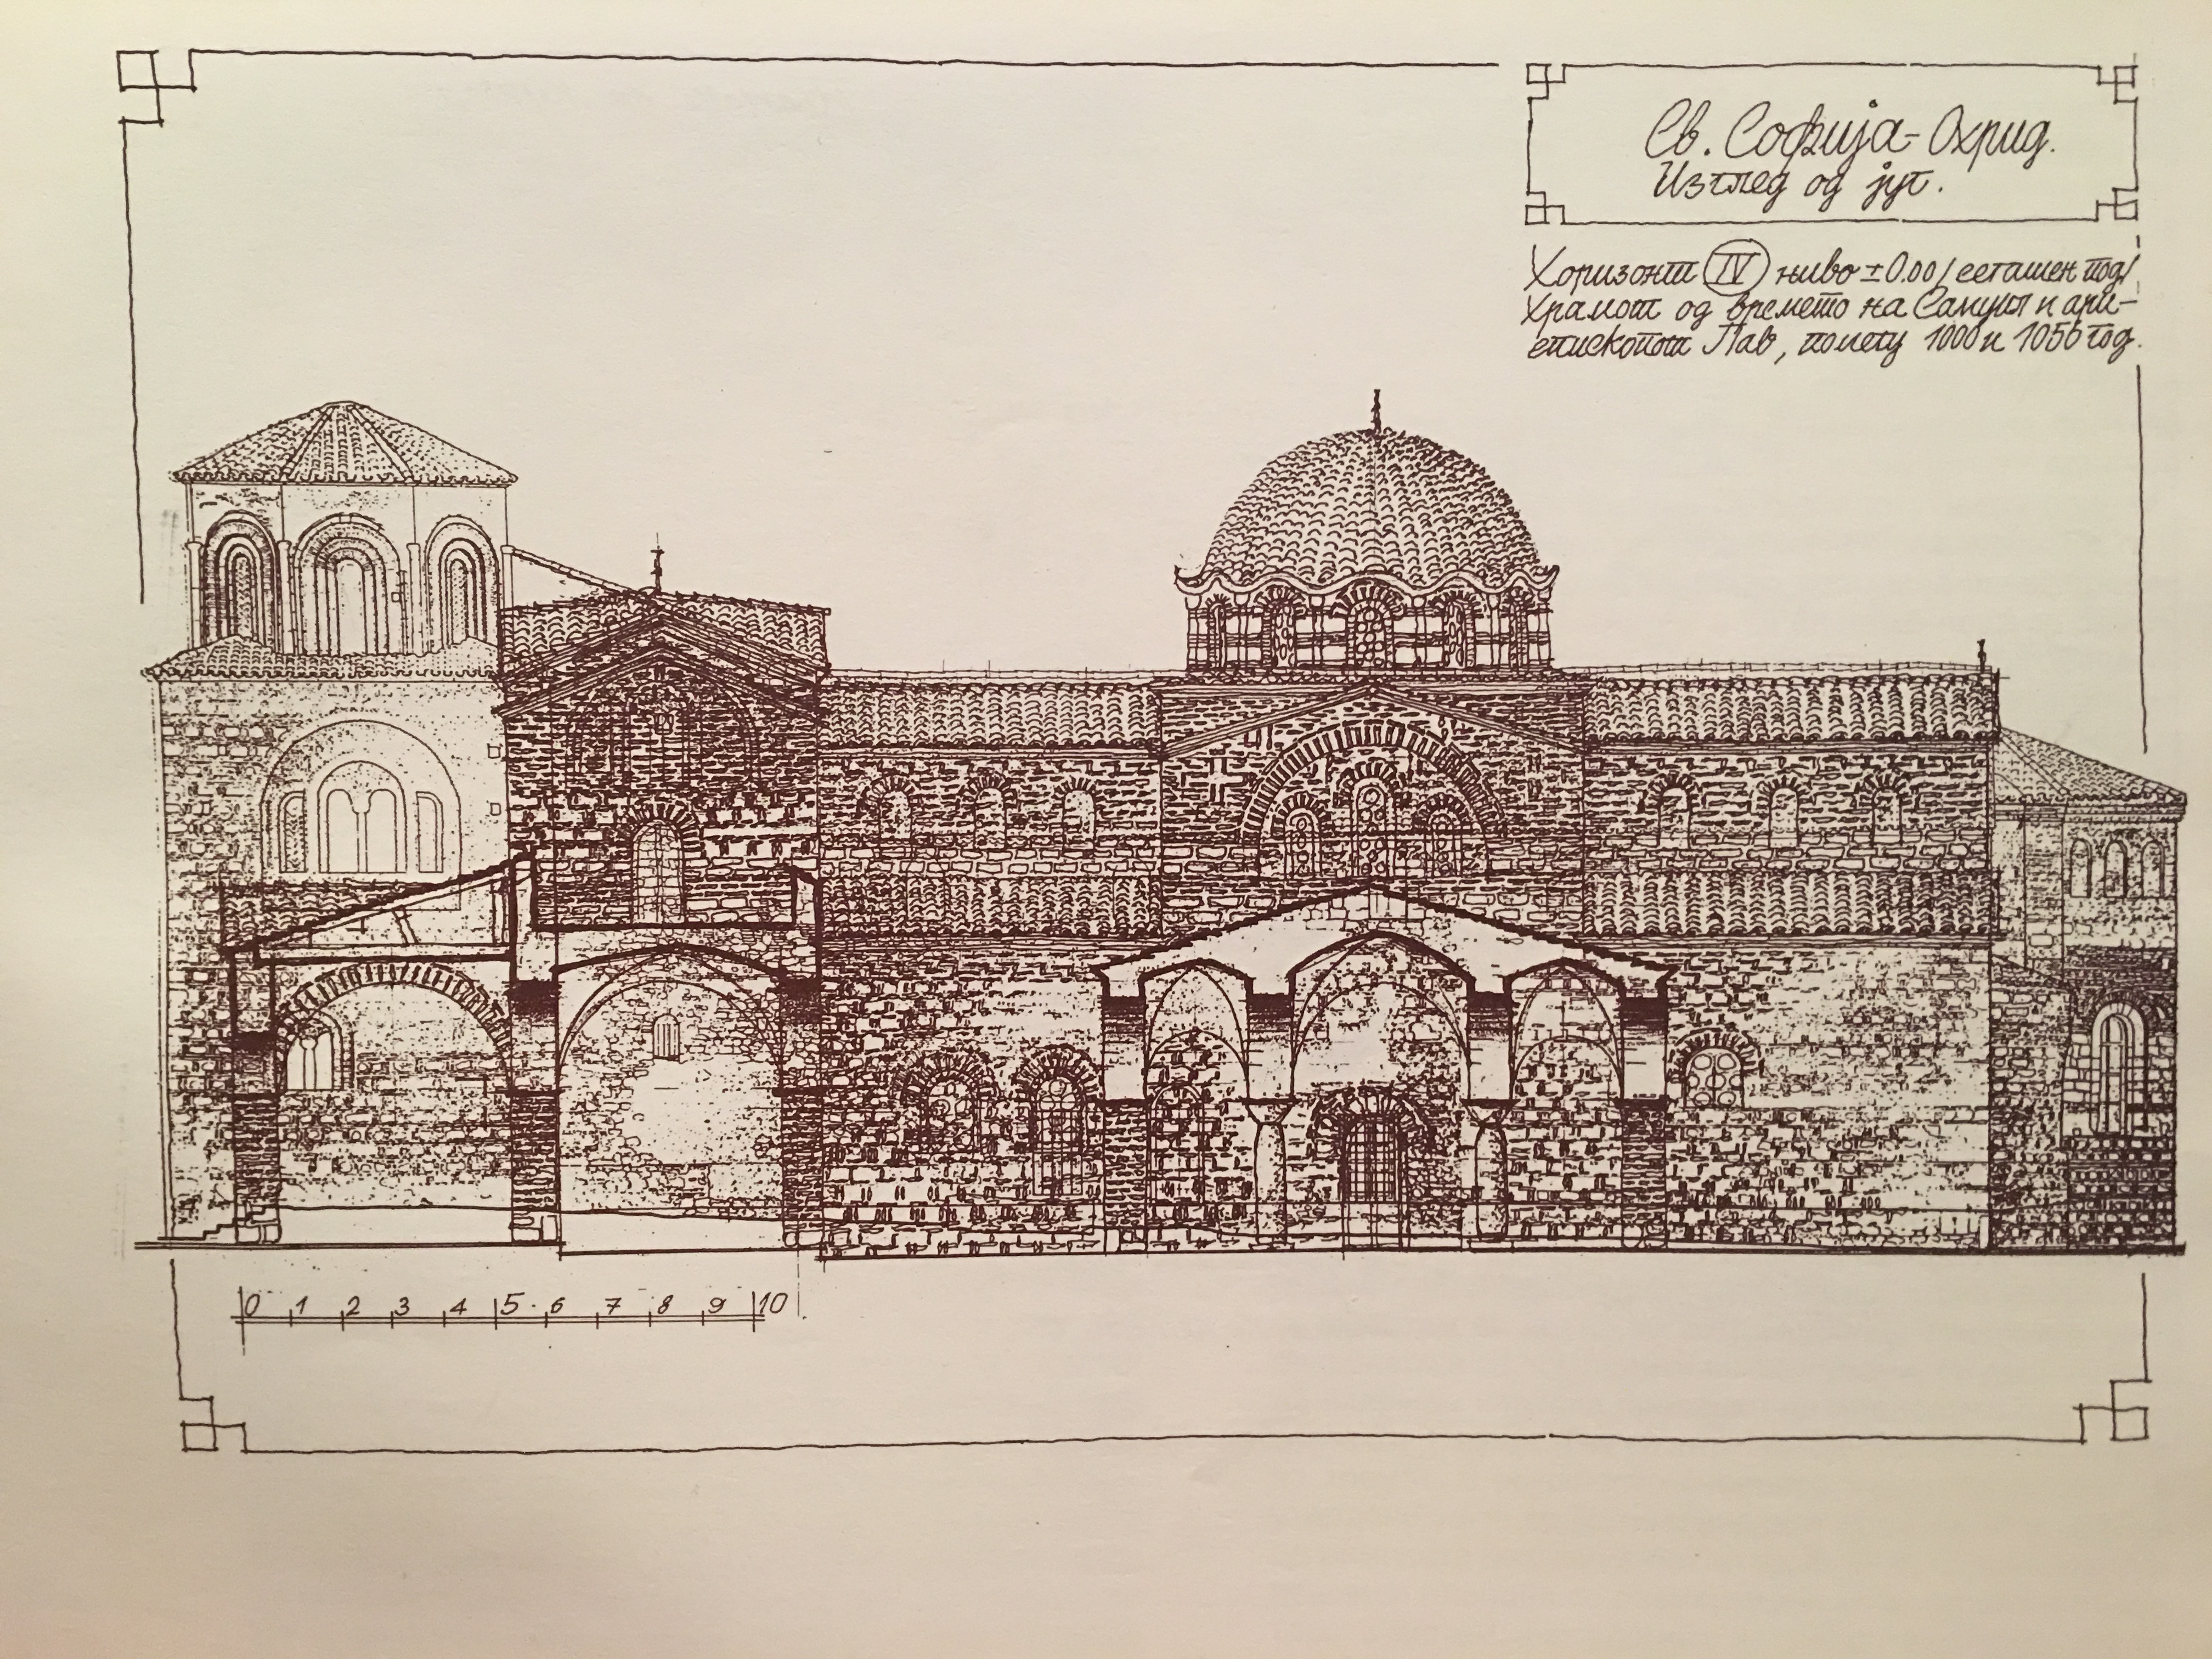 Св. Софија - Охрид.
Изглед од југ.
Хоризонт IV ниво ± 0.00 / сегашен под/
Храмот од времето на Самуил и архи-
епископот Лав, помеѓу 1000 и 1056 год.
0 1 2 3 4 5 6 7 8 9 10